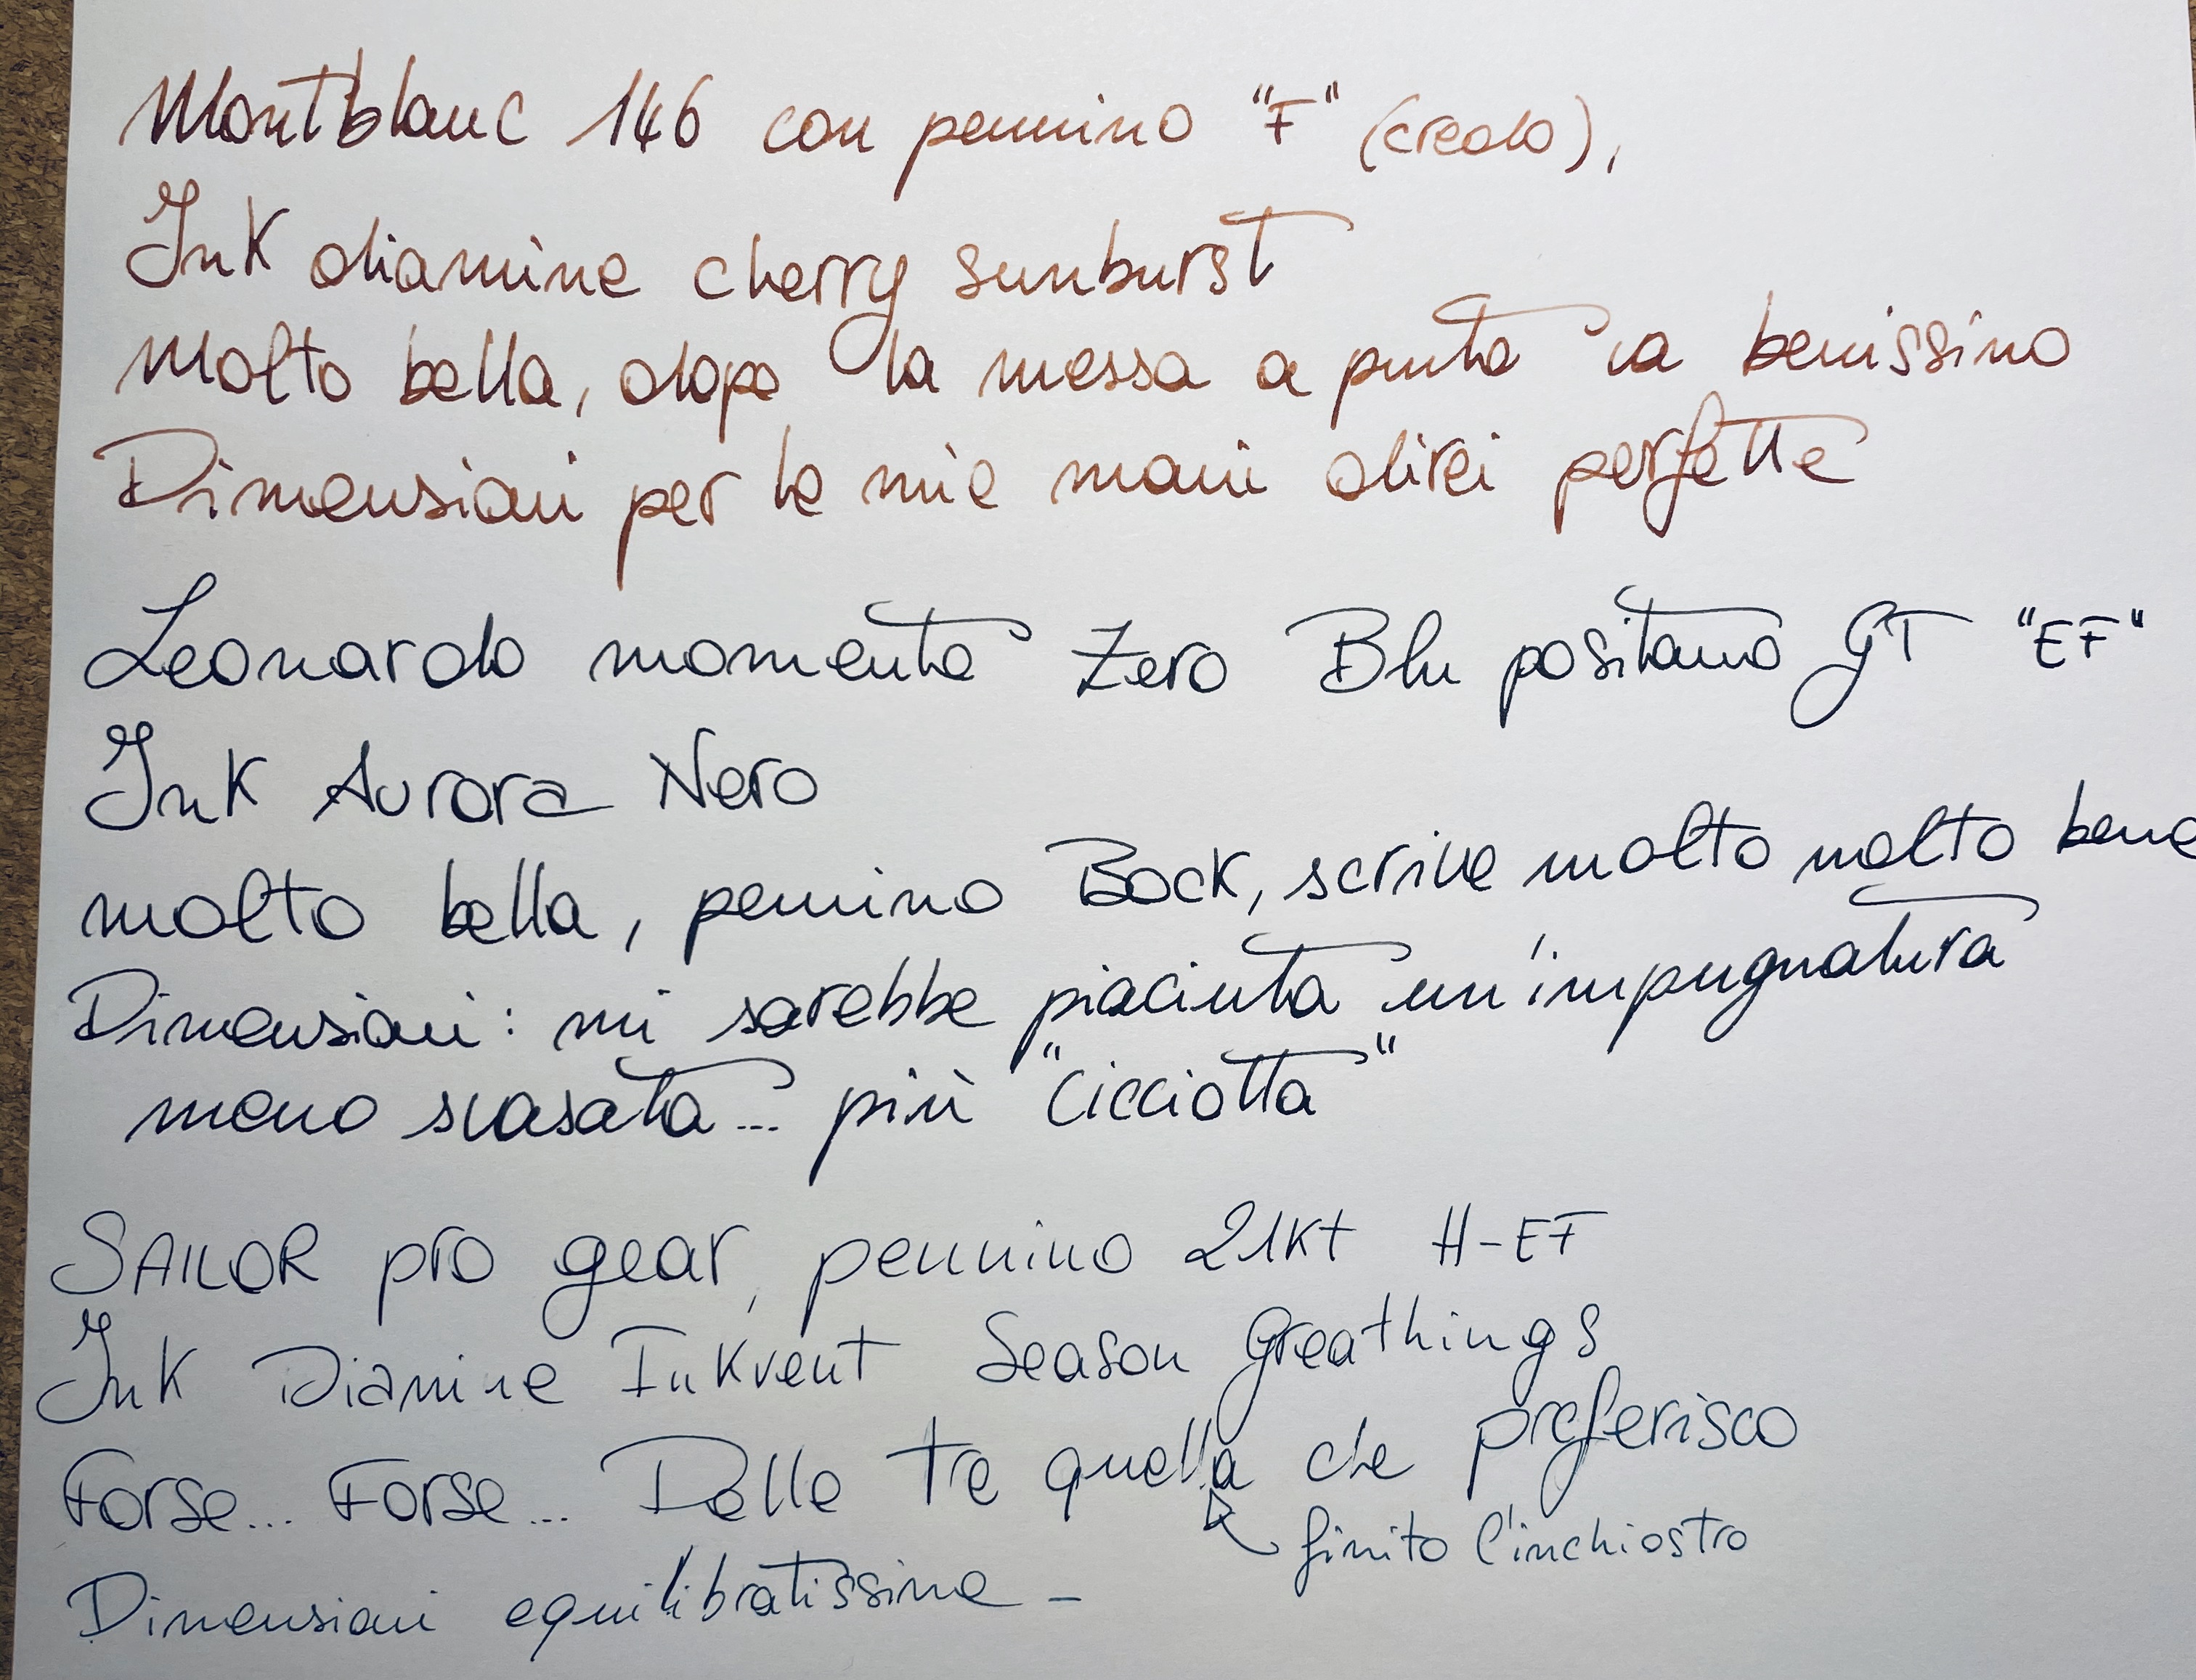 Montblanc 146 con pennino "F" (credo),
Ink diamine cherry sunburst
Molto bella, dopo la messa a punto va benissimo
Dimensioni per le mie mani direi perfette
Leonardo momento Zero Blu positano GT "EF"
Ink Aurora Nero
molto bella, pennino Bock, scrive molto molto bene
Dimensioni: mi sarebbe piaciuta un'impugnatura
meno svasata... più "cicciotta"
SAILOR pro gear, pennino 21Kt H-EF
Ink Diamine Inkvent Season Greathings
Forse... Forse... Delle tre quella che preferisco
finito l'inchiostro
Dimensioni equilibratissime -